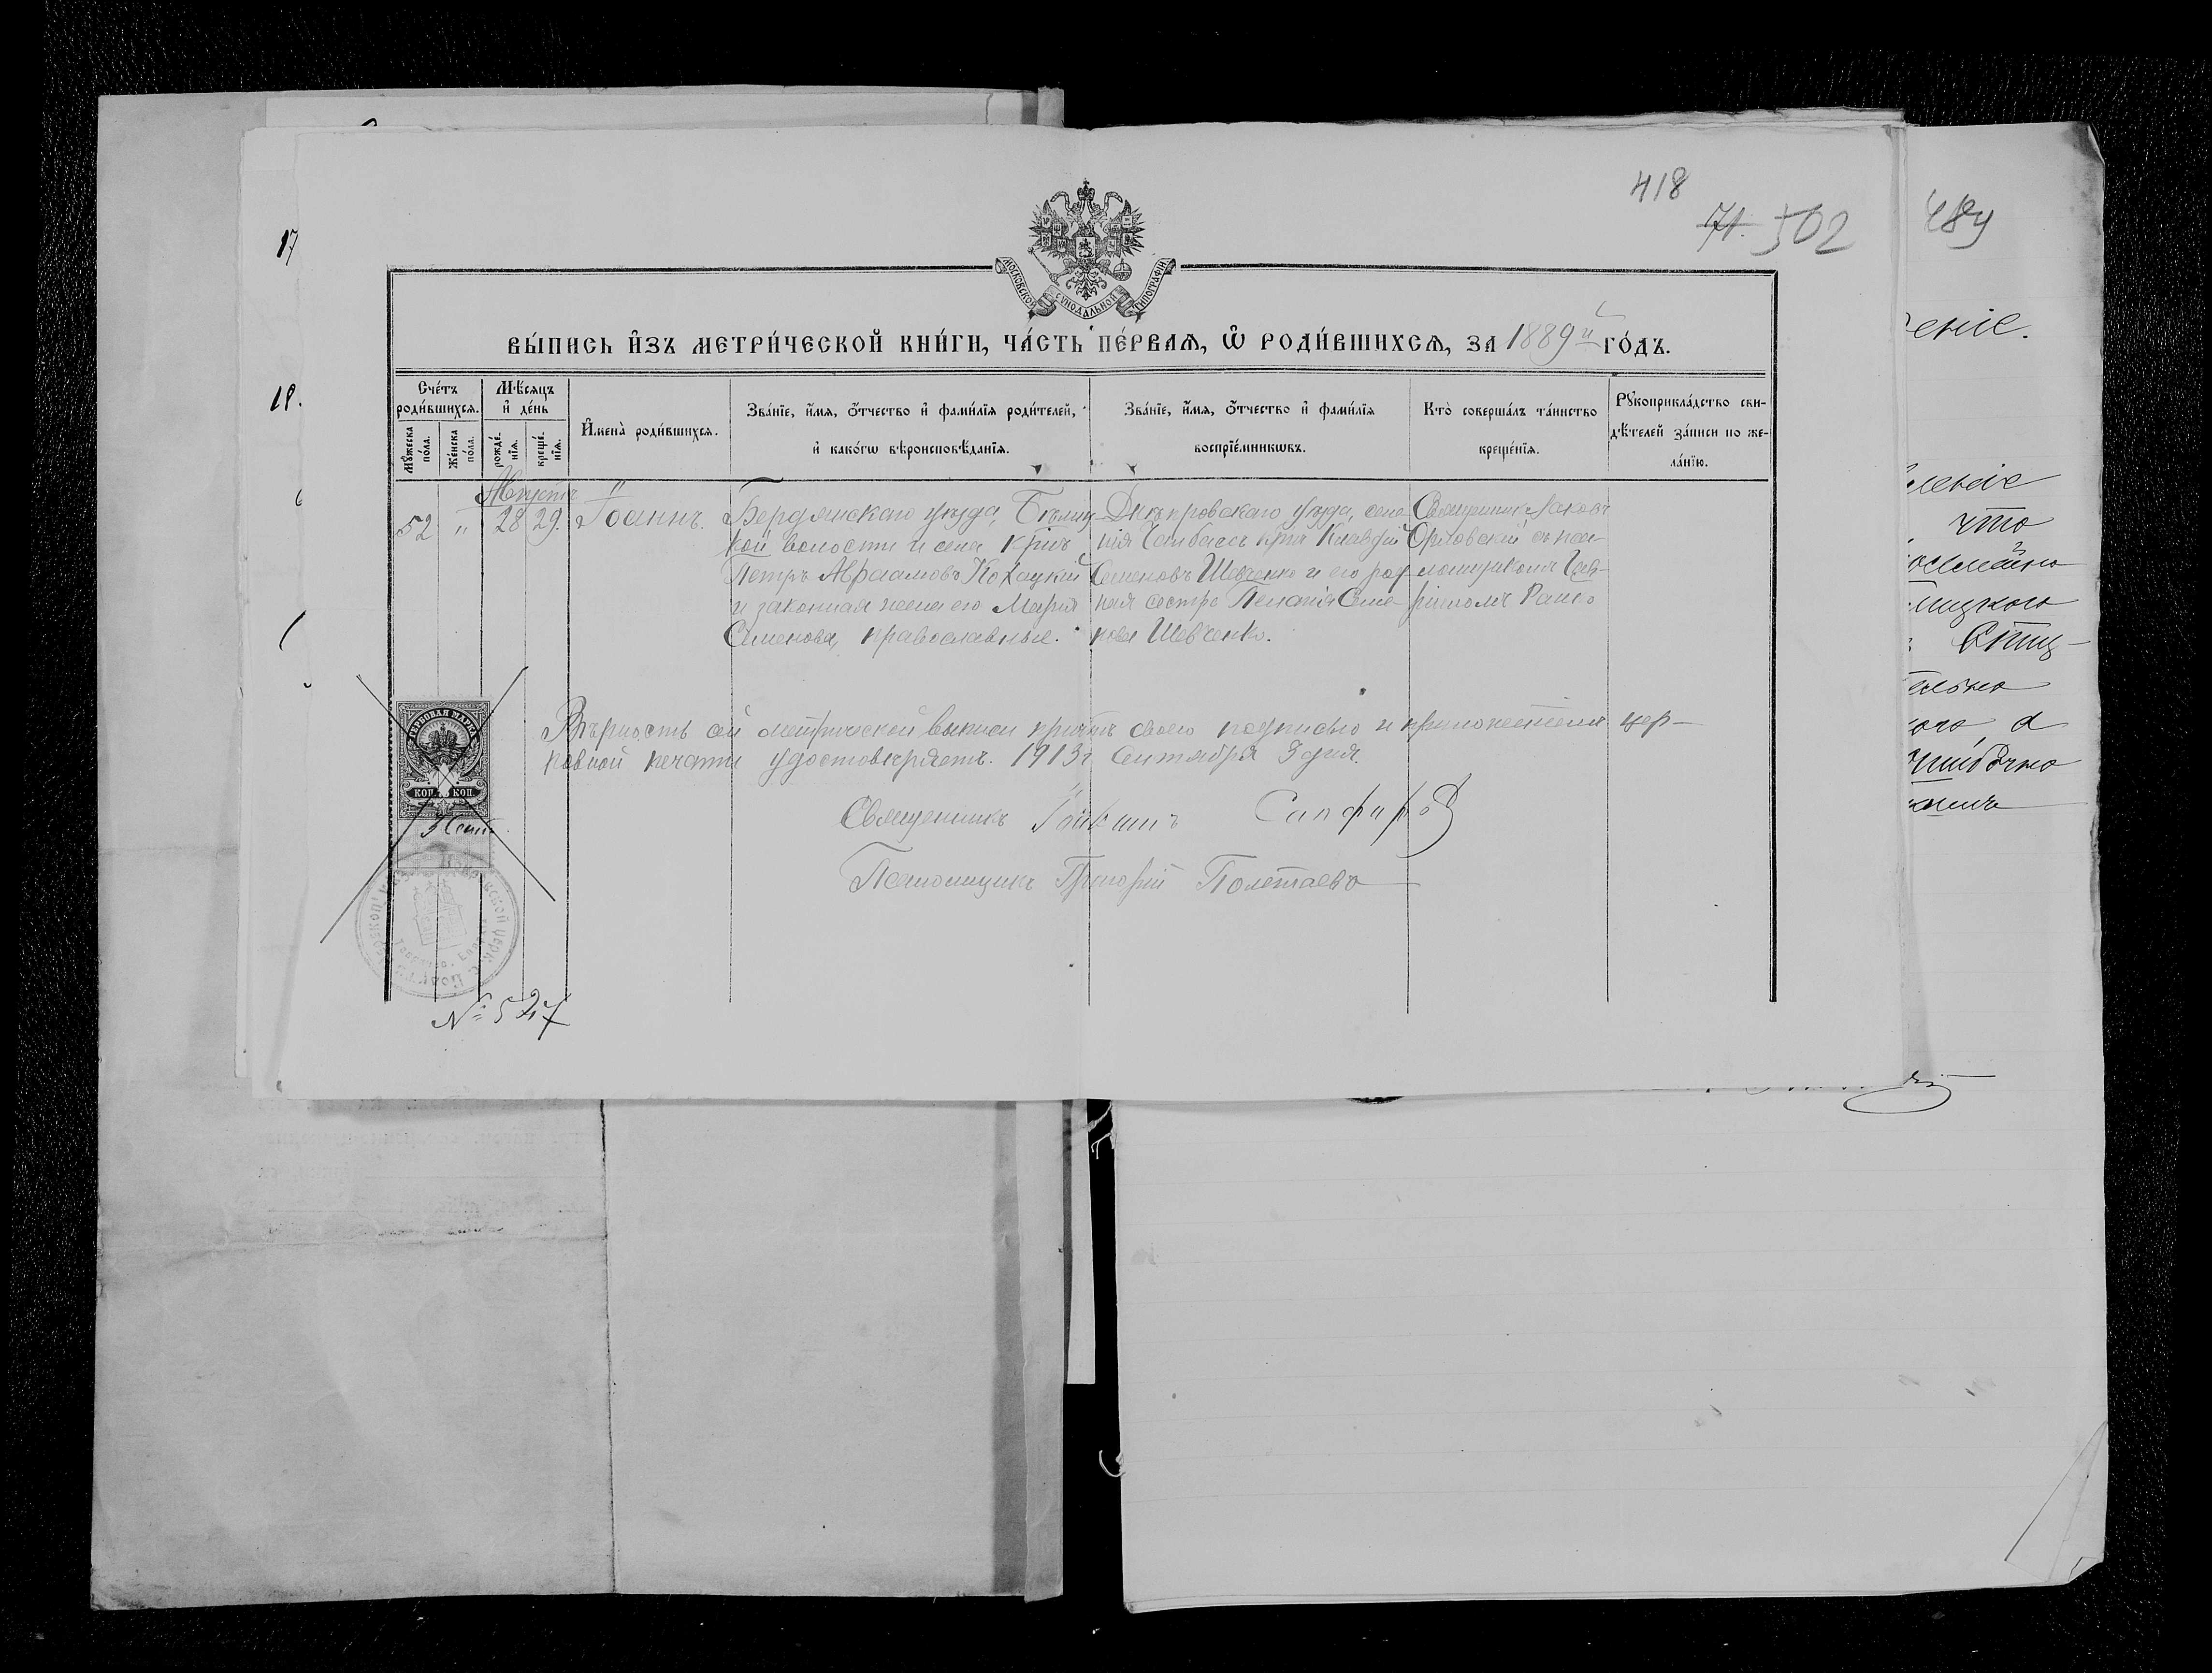 418
71. 502
484
17
18.
МОСКОВСКОЙ СУНОДАЛЬНОЙ ТИПОГРАФІИ
ВЫ́ПИСЬ И҆ЗЪ МЕТРИ́ЧЕСКОЙ КНИ́ГИ, ЧА́СТЬ ПЕ́РВАѦ, Ѽ РОДИ́ВШИХСѦ, ЗА 1889й ГО́ДЪ.
Сче́тъ роди́вшихсѧ.
Мꙋ́жеска по́ла.
Же́нска по́ла.
Мѣ́сѧцъ и҆ де́нь
рожде́нїѧ.
креще́нїѧ.
И҆мена̀ роди́вшихсѧ.
Зва́нїе, и҆́мѧ, ѻ҆́тчество и҆ фами́лїѧ роди́телей,
и҆ како́гѡ вѣроисповѣ́данїѧ.
Зва́нїе, и҆́мѧ, ѻ҆́тчество и҆ фами́лїѧ
воспрїе́мникѡвъ.
Кто̀ соверша́лъ та́инство
креще́нїѧ.
Рꙋкоприкла́дство сви-
дѣ́телей за́писи по же-
ла́нїю.
Августъ
52 " 28 29. Іоаннъ.
Бердянскаго уѣзда,
кой волости и села крит
Петръ Авраамовъ
и законная жена его Марія
Семенова, православные.
Днѣпровскаго уѣзда, селе
нія Чалбассъ крит
Семеновъ Шевченко и его род
ная сестра Пелагія Семе-
нова Шевченко.
Священникъ Іаковъ
Орловскій съ пса-
ломщикомъ Гав-
ріиломъ Раико
Вѣрность сей метрической выписи причтъ своею подписью и приложеніемъ цер-
ковной печати удостовѣряетъ. 1913 г. Сентября 3 дня.
ГЕРБОВАЯ МАРКА
КОП. КОП.
3 Сент
Священникъ
Псаломщикъ Григорій Полетаевъ
№ 527
еніе.
что
а